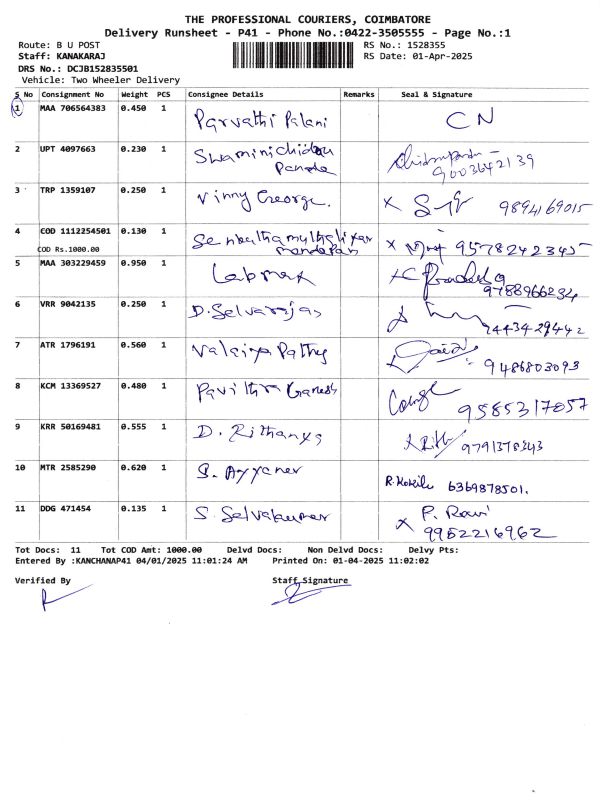 THE PROFESSIONAL COURIERS, COIMBATORE
Delivery Runsheet - P41 - Phone No.:0422-3505555 - Page No.:1
Route: B U POST RS No.: 1528355
Staff: KANAKARAJ RS Date: 01-Apr-2025
DRS No.: DCJB152835501
Vehicle: Two Wheeler Delivery
S No Consignment No Weight PCS Consignee Details Remarks Seal & Signature
1 MAA 706564383 0.450 1 Parvathi Palani CN
2 UPT 4097663 0.230 1 Swaminichidam
9003642139
3 TRP 1359107 0.250 1 Vinny George. X 9894169015
4 COD 1112254501 0.130 1 X 9578242345
COD Rs.1000.00
5 MAA 303229459 0.950 1 Labmax
9788966234
6 VRR 9042135 0.250 1 D. Selvarajas
9443429442
7 ATR 1796191 0.560 1 Valaiya Pathy
9486803093
8 KCM 13369527 0.480 1 Pavithra Ganesh
9585317057
9 KRR 50169481 0.555 1 D. Rithanya 9791378343
10 MTR 2585290 0.620 1 S. Ayyaner R. Kokila 6369878501.
11 DDG 471454 0.135 1 S. Selvakumar X P. Ravi
9952216962
Tot Docs: 11 Tot COD Amt: 1000.00 Delvd Docs: Non Delvd Docs: Delvy Pts:
Entered By :KANCHANAP41 04/01/2025 11:01:24 AM Printed On: 01-04-2025 11:02:02
Verified By Staff Signature